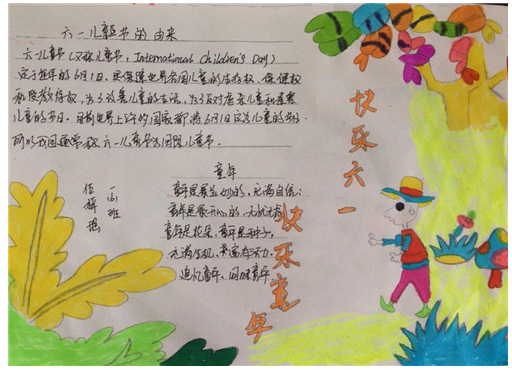 六一儿童节的由来
六一儿童节(又称儿童节,International Children's Day)
定于每年的6月1日。为保障世界各国儿童的生存权、保健权
和受教育权,为了改善儿童的生活,为了反对虐杀儿童和毒害
儿童的节日。目前世界上许多的国家都将6月1日定为儿童的节日。
所以我国通常称六一儿童节为国际儿童节。
快乐六一
童年
童年是
的,充满自信;
童年是最开心的,无忧无虑
童年是花朵,童年是种子,
充满生机,
富有活力。
追忆童年,回味童年
一
班
快乐童年